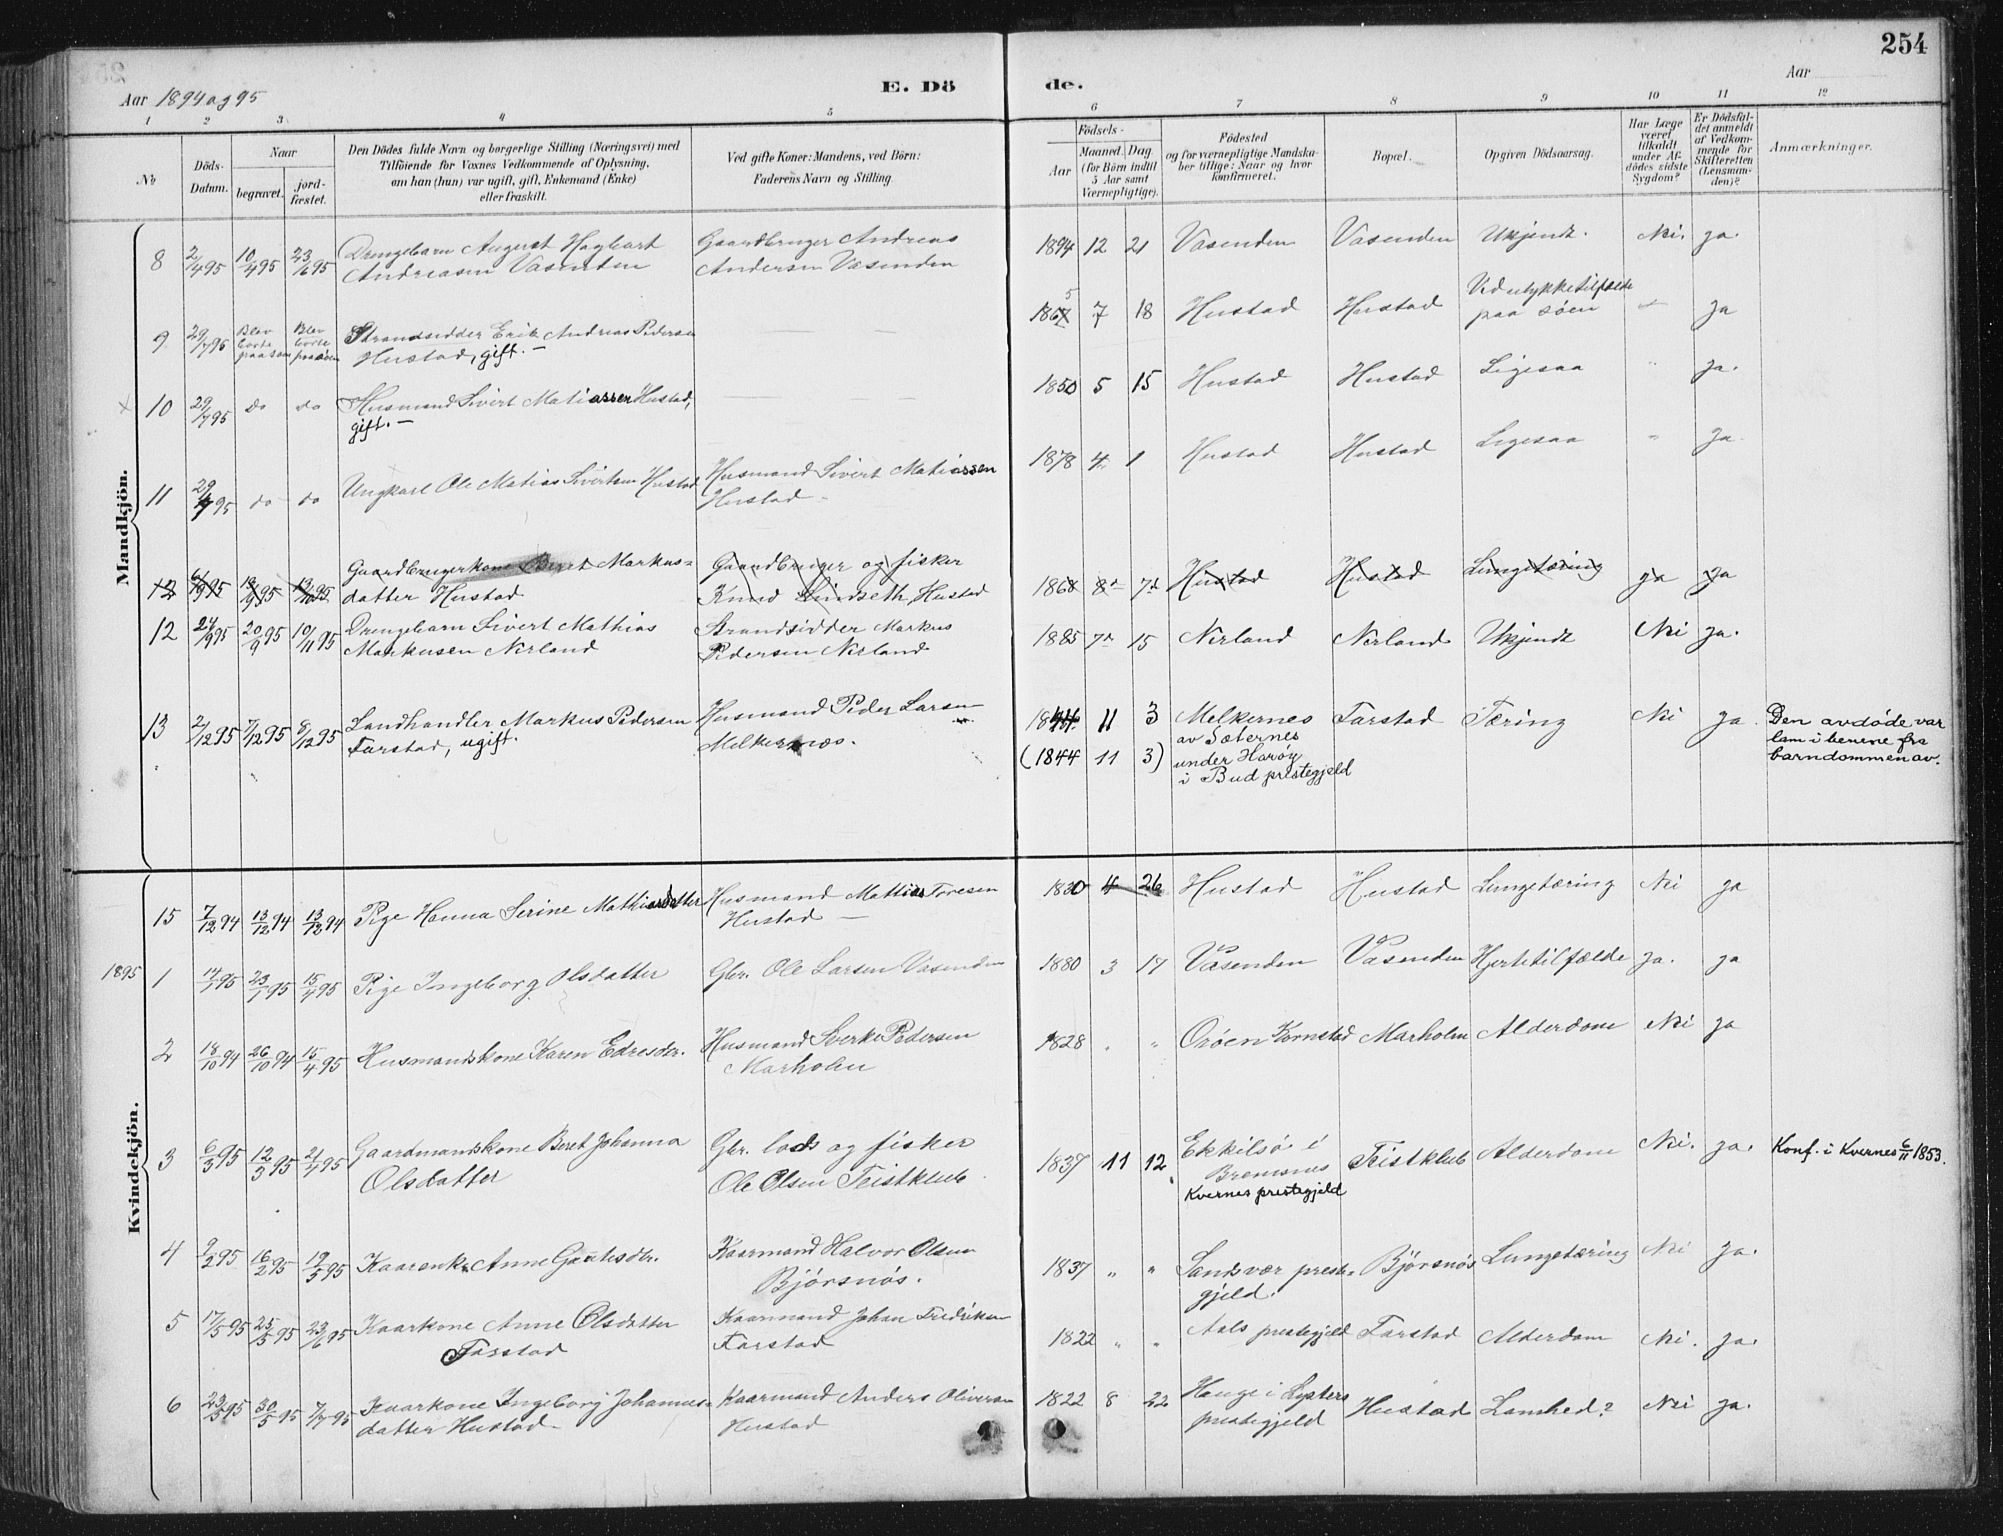 254
Aar 1894 og 95
E. Dö
de.
Aar
1 2 3 4 5 6 7 8 9 10 11 12
No
Döds-Datum.
Naar
begravet.
jord-fæstet.
Den Dödes fulde Navn og borgerlige Stilling (Næringsvei) med
Tilföiende for Voxnes Vedkommende af Oplysning,
om han (hun) var ugift, gift, Enkemand (Enke)
eller fraskilt.
Ved gifte Koner: Mandens, ved Börn:
Faderens Navn og Stilling
Födsels-
Aar
Maaned. Dag.
(for Börn indtil
5 Aar samt
Værnepligtige).
Födested
og for værnepligtige Mandska-
ber tillige: Naar og hvor
konfirmeret.
Bopæl.
Opgiven Dödsaarsag.
Har Læge
været
tilkaldt
under Af-
dödes sidste
Sygdom?
Er Dödsfal-
det anmeldt
af Vedkom-
mende for
Skifteretten
(Lensman-
den)?
Anmærkninger.
Mandkjön.
8 2/4 95 10/4 95 23/6 95 Drengebarn August Hagbart Gaardbruger Andreas 1894 12 21 Vasenden Vasenden Ukjendt. Nei. ja.
Andreasen Vasenden Andersen Vasenden
9 29/7 95 Blev borte paa søen Blev borte paa søen Strandsidder Erik Andreas Pedersen 1867 5 7 18 Hustad Hustad Ved ulykkestilfælde ja
Hustad, gift. — paa søen
x 10 29/7 95 do do Husmand Sivert Matiassen Hustad, 1850 5 15 Hustad Hustad Ligesaa " ja.
gift. —
11 29/7 95 do do Ungkarl Ole Matias Sivertsen Hustad Husmand Sivert Matiassen 1878 4 1 Hustad Hustad Ligesaa " ja.
Hustad
12 6/9 95 13/9 95 13/10 95 Gaardbrugerkone Beret Markus= Gaardbruger og fisker 1868 8 7 Hustad Hustad Lungetæring ja ja
datter Hustad Knud Lindseth, Hustad
12 95 20/9 95 10/11 95 Drengebarn Sivert Mathias Strandsidder Markus 1885 7 15 Nerland Nerland Ukjendt Nei ja.
Markusen Nerland Pedersen Nerland
13 2/12 95 7/12 95 8/12 95 Landhandler Markus Pedersen Husmand Peder Larsen 1844 11 3 Melkernes Farstad Tæring Nei ja. Den avdøde var
Farstad, ugift. Melkernæs. av Sæternes lam i benene fra
(1844 11 3) under Harøy barndommen av.
i Bud prestegjeld
Kvindekjön.
15 7/12 94 13/12 94 13/12 94 Pige Hanna Serine Mathiasdatter Husmand Mathias Toresen 1830 4 26 Hustad Hustad Lungetæring Nei ja
Hustad —
1895
1 14/1 95 23/1 95 15/4 95 Pige Ingeborg Olsdatter Gbr. Ole Larsen Vasenden 1880 3 17 Våsenden Våsenden Hjertetilfælde ja. ja
2 18/10 94 26/10 94 15/4 95 Husmandskone Karen Edresdtr. Husmand Sverke Pedersen 1828 " " Orøen Kornstad Marholm Alderdom Nei ja
Marholm
3 6/3 95 12/3 95 21/4 95 Gaardmandskone Beret Johanna Gbr. lods og fisker 1837 11 12 Ekkilsø i Teistklub Alderdom Nei. ja. Konf. i Kvernes 6/11 1853.
Olsdatter Ole Olsen Teistklub Bremsnes
Kvernes prestegjeld
4 9/2 95 16/2 95 19/5 95 Kaarenke Anne Gautesdtr. Kaarmand Halvor Olsen 1837 " " Sandsvær preste= Bjørsnös Lungetæring Nei ja.
Bjørsnös. gjeld.
5 17/5 95 25/5 95 23/6 95 Kaarkone Anne Olsdatter Kaarmand Johan Fredriksen 1822 " " Aals prestegjeld Farstad Alderdom Nei. ja.
Farstad Farstad
6 23/5 95 30/5 95 7/7 95 Kaarkone Ingeborg Johannes= Kaarmand Anders Oliversen 1822 8 22 Hauge i Lysters Hustad Lamhed? Nei ja.
datter Hustad Hustad prestegjeld